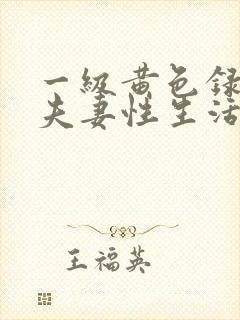 一级黄色录
夫妻性生活
王福英